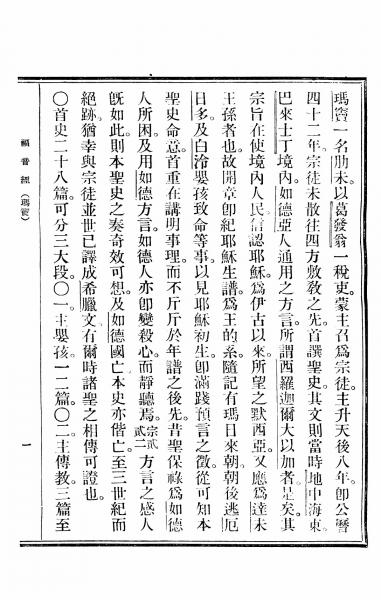 瑪竇一名肋未以葛發翁一稅吏蒙主召爲宗徒主升天後八年卽公曆
四十二年宗徒未散往四方敷敎之先首譔聖史其文則當時地中海東
巴來士丁境內如德亞人通用之方言所謂西羅迦爾大以加者是矣其
宗旨在使境內人民信認耶穌爲伊古以來所望之默西亞又應爲達未
王孫者也故開章卽紀耶穌生譜爲王的系隨記有瑪日來朝朝後逃厄
日多及白冷嬰孩致命等事以見耶穌初生卽滿踐預言之徵從可知本
聖史命意首重在講明事理而不斤斤於年譜之後先昔聖保祿爲如德
人所困及用如德方言如德人亦卽變殺心而靜聽焉宗二二武方言之感人
旣如此則本聖史之奏奇效可想及如德國亡本史亦偕亡至三世紀而
絕跡猶幸與宗徒並世已譯成希臘文有爾時諸聖之相傳可證也
〇首史二十八篇可分三大段〇一主嬰孩一二篇〇二主傳教三篇至
福音經(瑪竇)
一